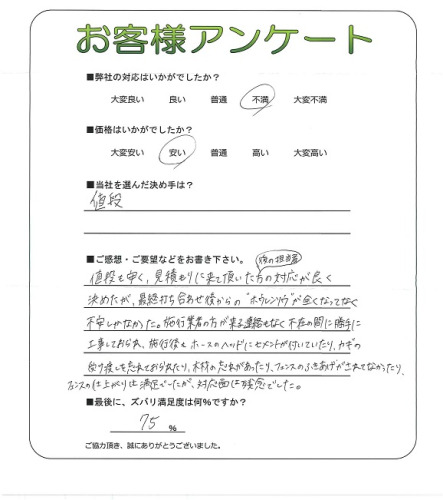 お客様アンケート
■弊社の対応はいかがでしたか？
大変良い 良い 普通 不満 大変不満
■価格はいかがでしたか？
大変安い 安い 普通 高い 大変高い
■当社を選んだ決め手は？
値段
■ご感想・ご要望などをお書き下さい。 後の担当者
値段も安く、見積もりに来て頂いた方の対応が良く
決めたが、最終打ち合わせ後からの "ホウレンソウ" が全くなってなく
不安しかなかった。施行業者の方が来る連絡もなく不在の間に勝手に
工事しておられ、施行後もホースのヘッドにセメントが付いていたり、カギの
受け渡しを忘れておられたり、木材の忘れがあったり、フェンスのふきあげがされてなかったり、
フェンスの仕上がりは満足でしたが、対応面は残念でした。
■最後に、ズバリ満足度は何%ですか？
75 %
ご協力頂き、誠にありがとうございました。